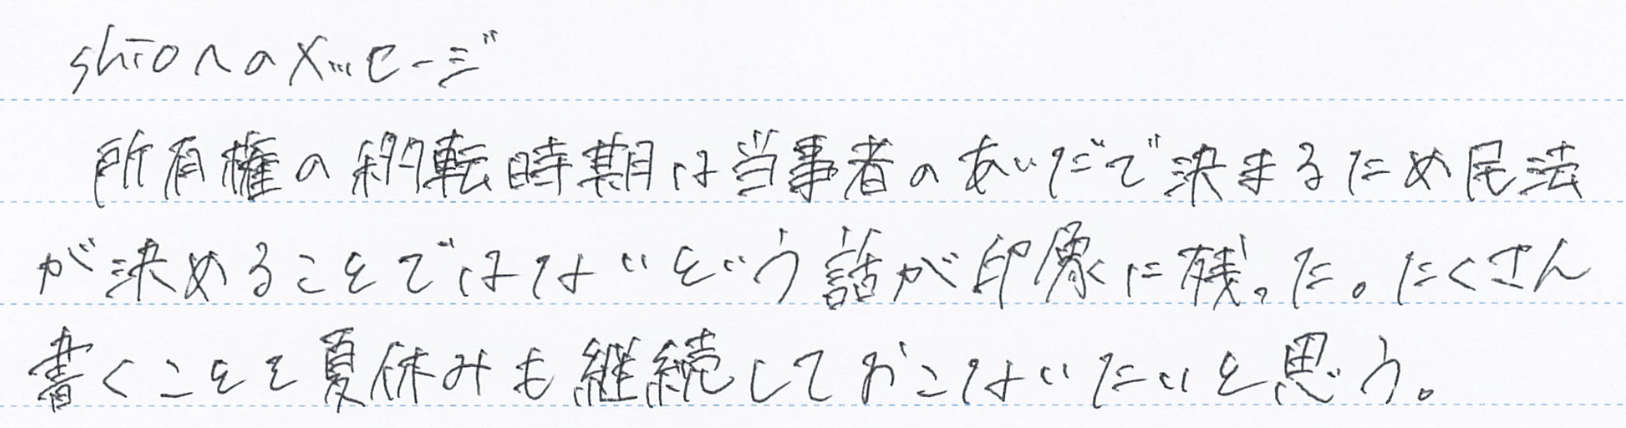 shioへのメッセージ
所有権の移転時期は当事者のあいだで決まるため民法
が決めることではないという話が印象に残った。たくさん
書くことを夏休みも継続しておこないたいと思う。